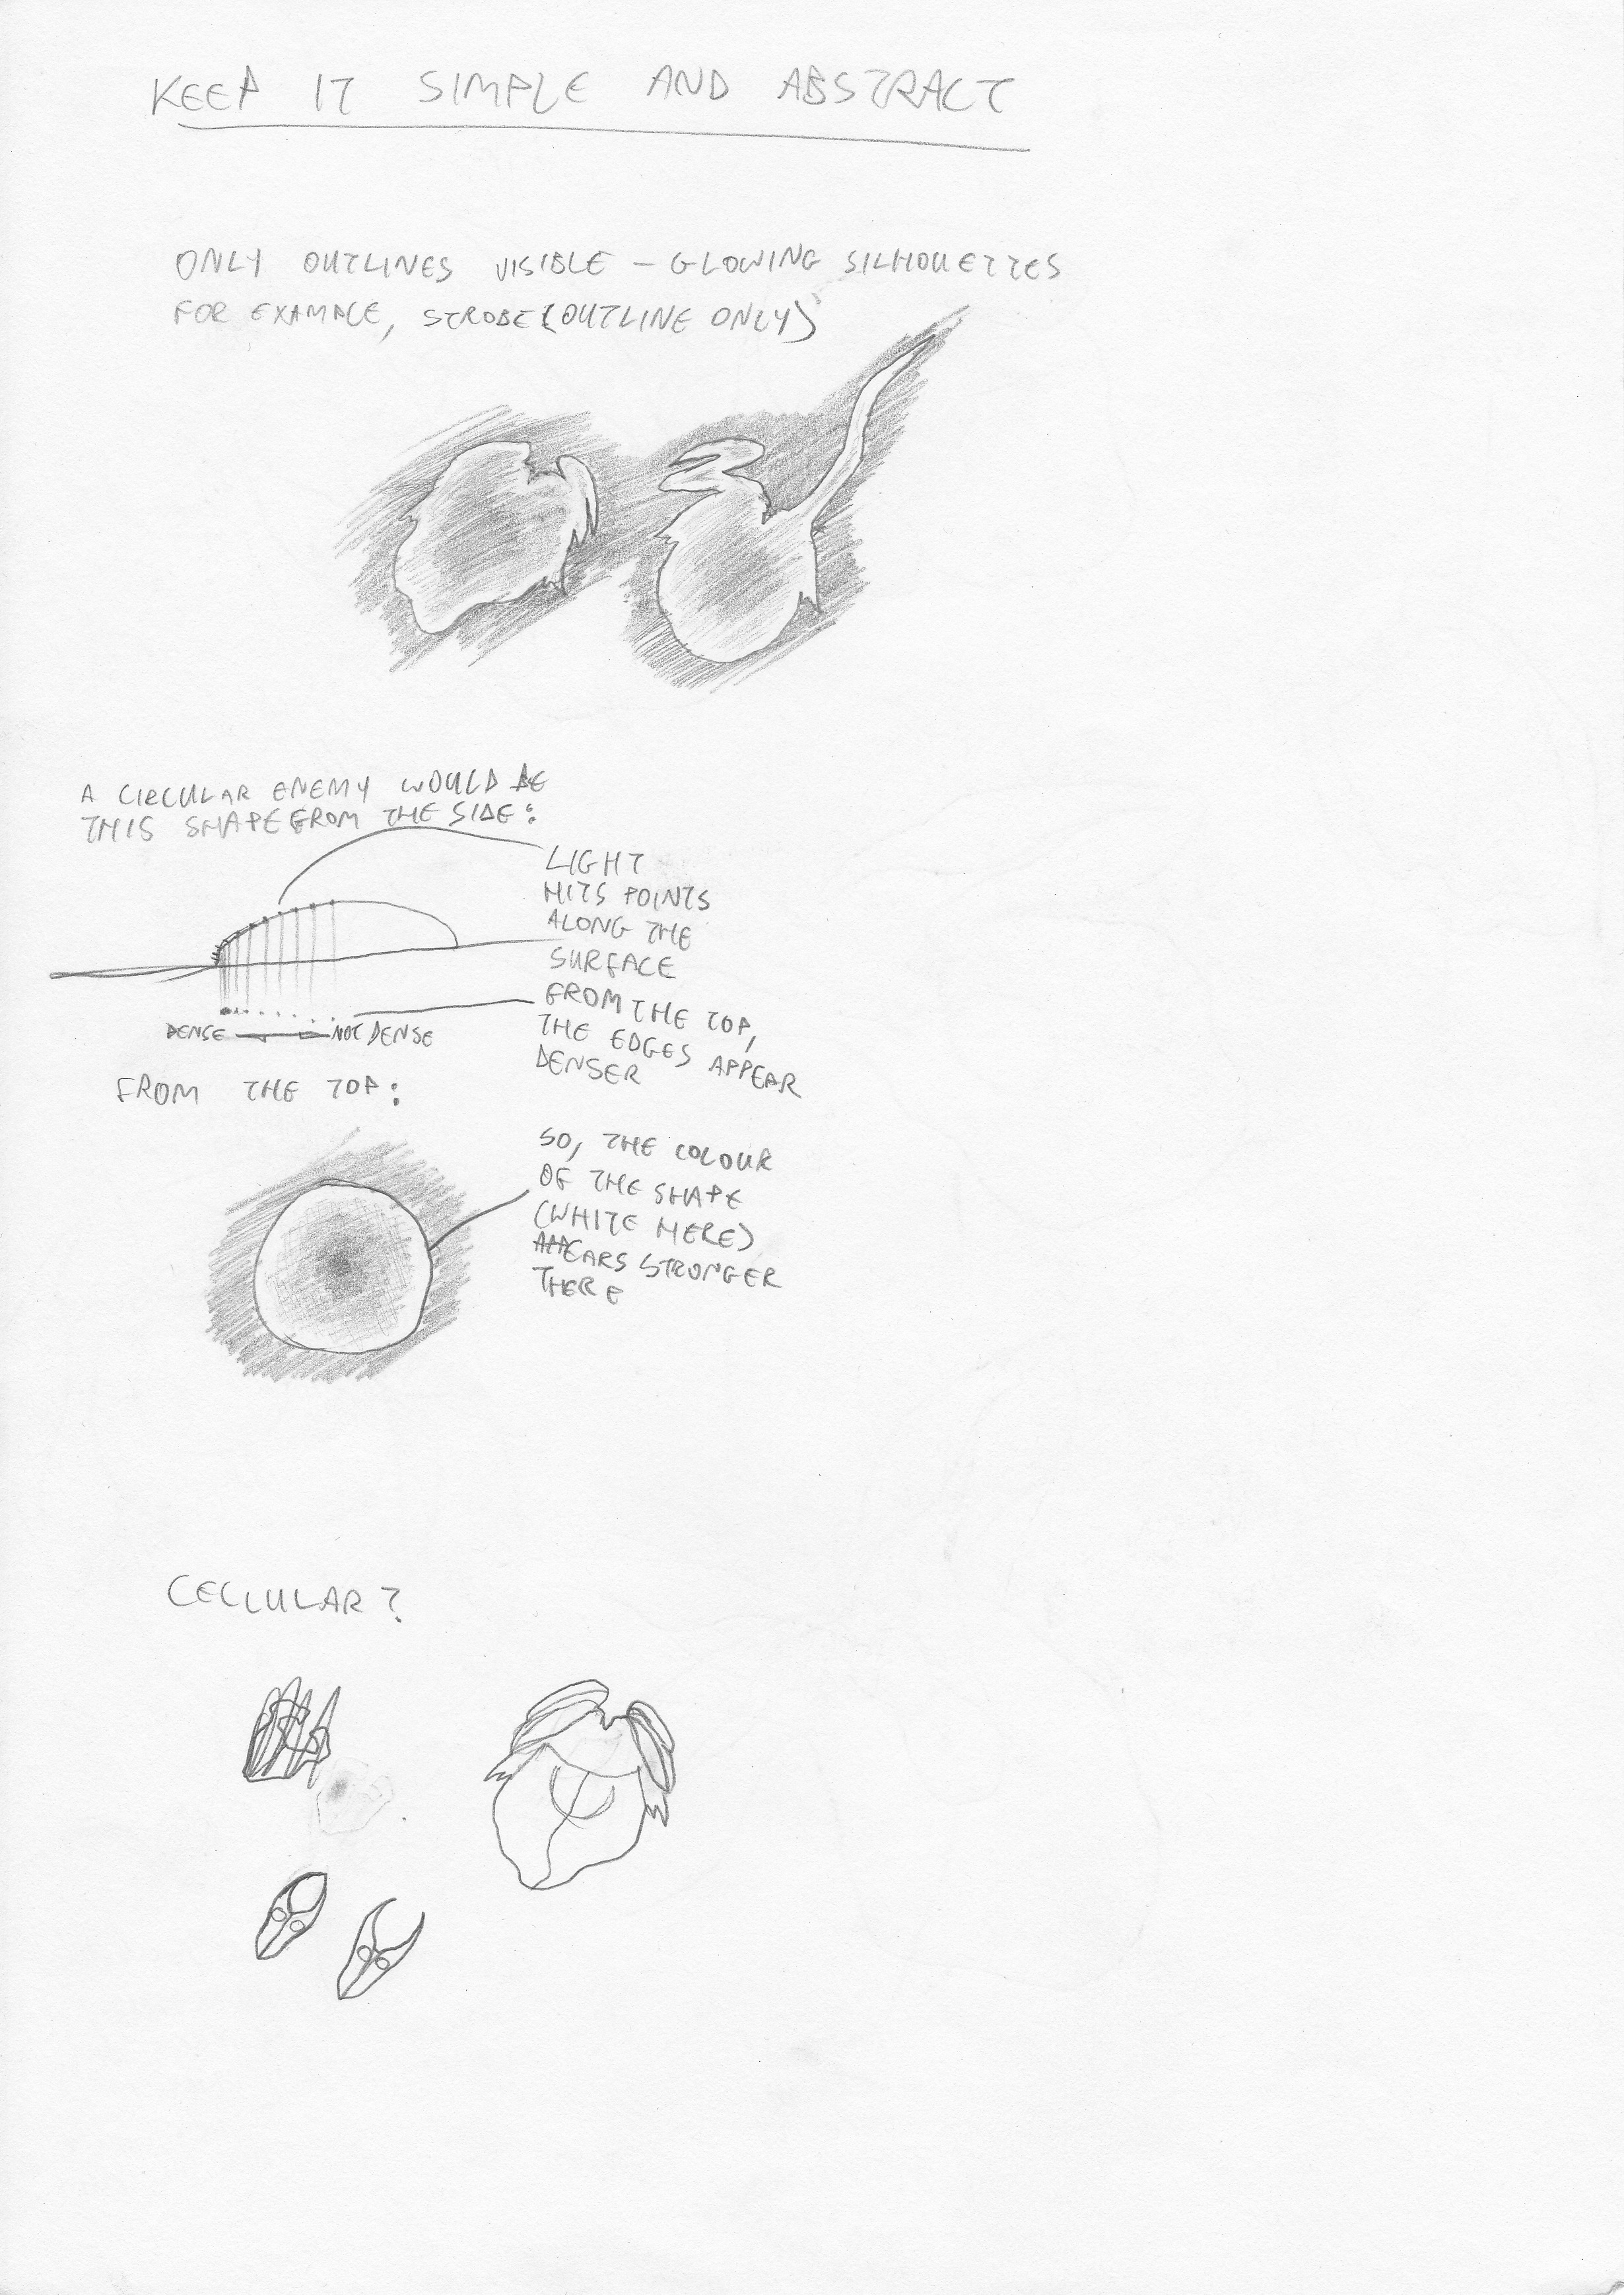 KEEP IT SIMPLE AND ABSTRACT
ONLY OUTLINES VISIBLE – GLOWING SILHOUETTES
FOR EXAMPLE, STROBE (OUTLINE ONLY)
A CIRCULAR ENEMY WOULD BE
THIS SHAPE FROM THE SIDE:
LIGHT
HITS POINTS
ALONG THE
SURFACE
FROM THE TOP,
THE EDGES APPEAR
DENSER
DENSE
NOT DENSE
FROM THE TOP:
SO, THE COLOUR
OF THE SHAPE
(WHITE HERE)
APPEARS STRONGER
THERE
CELLULAR?